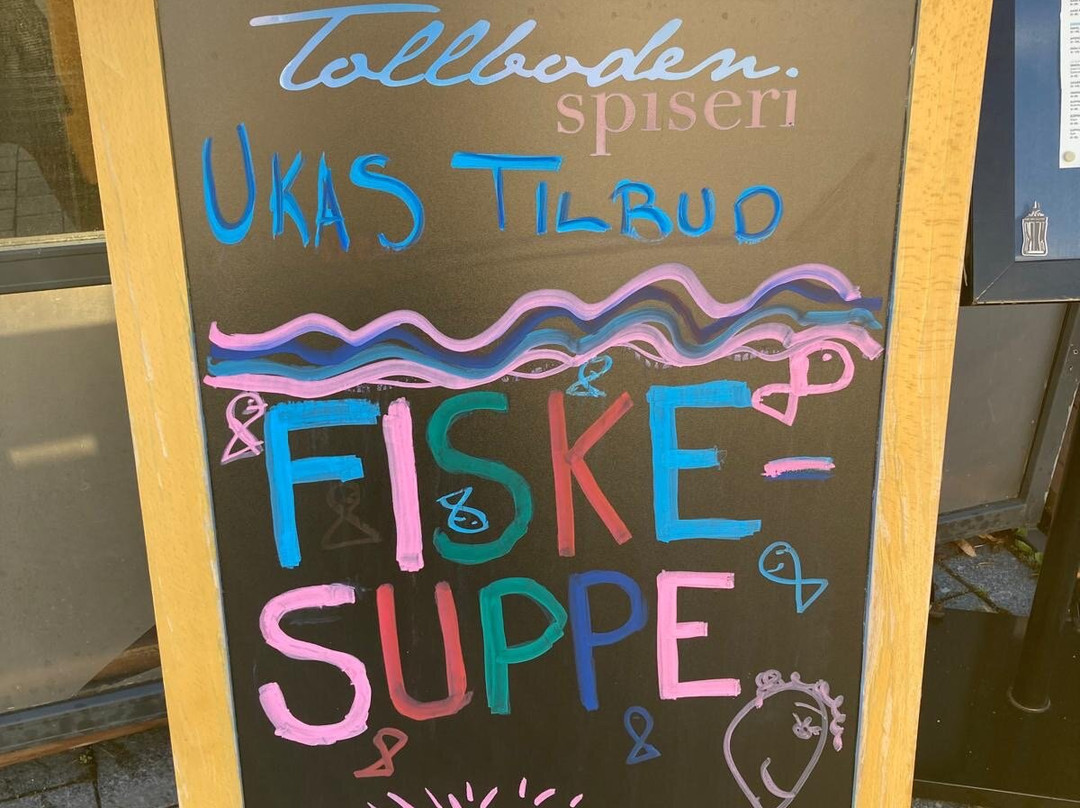 Tollboden.
spiseri
UKAS TILBUD
FISKE-
SUPPE